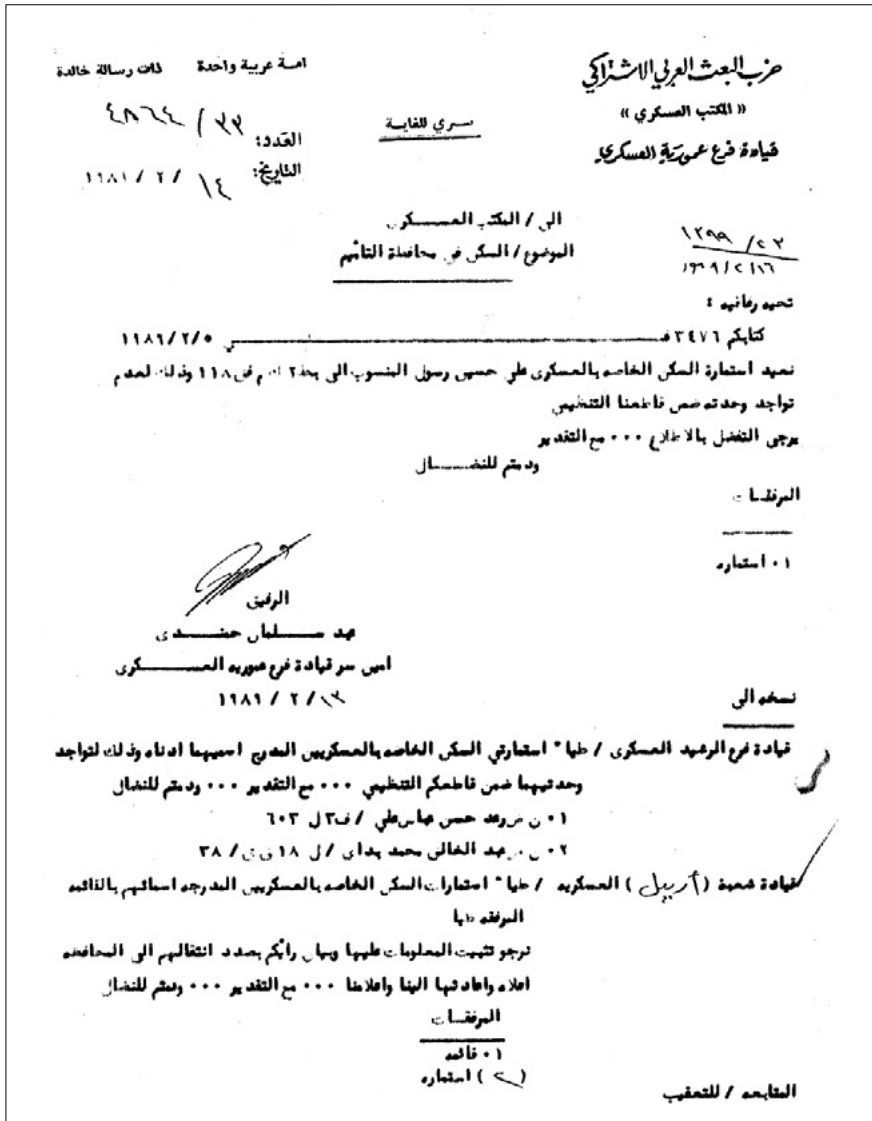 حزب البعث العربي الاشتراكي
« المكتب العسكري »
قيادة فرع عمورية العسكري
امة عربية واحدة ذات رسالة خالدة
سري للغاية
العدد: ٤٨٦٤ / ٣٣
التاريخ: ١٤ / ٢ / ١٩٨٩
١٢٩٩ / ٢٣
١٦ / ٢ / ١٩٨٩
الى / المكتب العسكري
الموضوع / السكن في محافظة التأميم
تحيه رفاقيه :
كتابكم ٣٤٧٦ في ١٩٨٩/٢/٥
نعيد استمارة السكن الخاصه بالعسكرى علي حسين رسول المنسوب الى ٢ ١١٨ وذلك لعدم
تواجد وحدته ضمن قاطعنا التنظيمي
يرجى التفضل بالاطلاع ٠٠٠ مع التقدير
ودمتم للنضــــال
المرفقات
٠١ استماره
الرفيق
سلمان
امين سر قيادة فرع عموريه العســكرى
١٣ / ٢ / ١٩٨٩
نسخه الى
قيادة فرع الرشيد العسكرى / طيا" استمارتي السكن الخاصه بالعسكريين المدرج اسميهما ادناه وذلك لتواجد
وحدتيهما ضمن قاطعكم التنظيمي ٠٠٠ مع التقدير ٠٠٠ ودمتم للنضال
٠١ رعد حسن عباس علي / ف٣ ل ٦٠٣
٠٢ عبد الخالق محمد / ل ١٨ / ٣٨
قيادة شعبة ( أربيل ) العسكريه / طيا" استمارات السكن الخاصه بالعسكريين المدرجه اسمائهم بالقائمه
المرفقه طيا
نرجو تثبيت المعلومات عليها وبيان رأيكم بصدد انتقالهم الى المحافظه
اعلاه واعادتها الينا واعلامنا ٠٠٠ مع التقدير ٠٠٠ ودمتم للنضال
المرفقات
٠١ قائمه
( ٢ ) استماره
المتابعه / للتعقيب